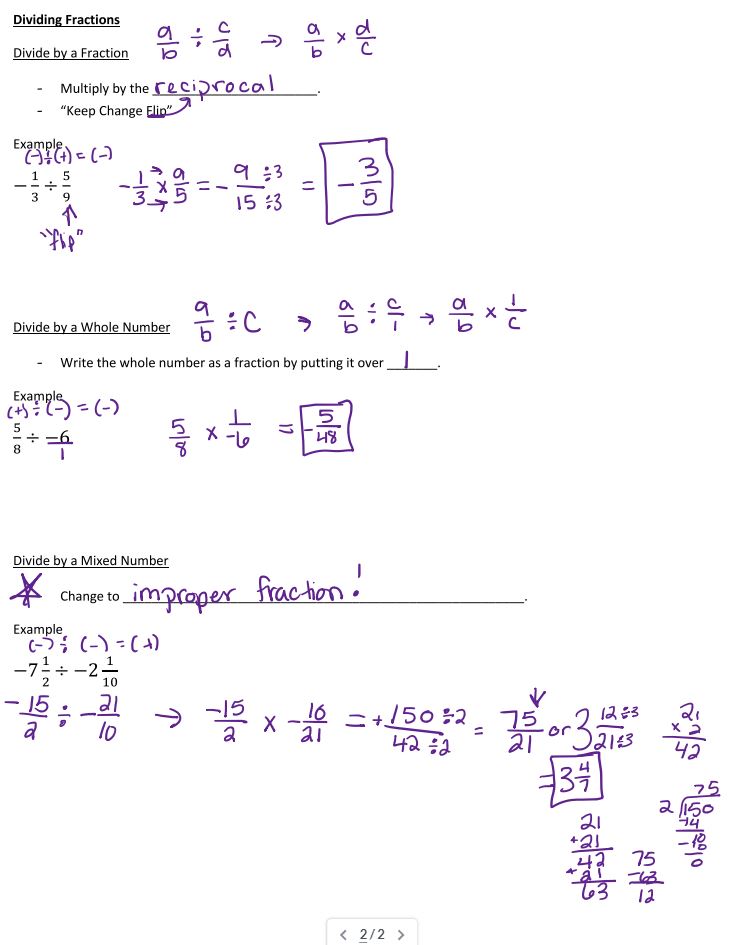 Dividing Fractions
a/b ÷ c/d → a/b × d/c
Divide by a Fraction
- Multiply by the reciprocal.
- "Keep Change Flip"
Example
(-)÷(+) = (-)
-1/3 ÷ 5/9   -1/3 × 9/5 = -9/15 ÷3/÷3 = -3/5
"flip"
Divide by a Whole Number   a/b ÷ c → a/b ÷ c/1 → a/b × 1/c
- Write the whole number as a fraction by putting it over 1.
Example
(+)÷(-) = (-)
5/8 ÷ -6/1   5/8 × 1/-6 = -5/48
Divide by a Mixed Number
Change to improper fraction!.
Example
(-)÷(-) = (+)
-7 1/2 ÷ -2 1/10
-15/2 ÷ -21/10 → -15/2 × -10/21 = +150/42 ÷2/÷2 = 75/21 or 3 12/21 ÷3/÷3
= 3 4/7
21
× 2
42
75
2 150
-14
-10
0
21
+21
42
+21
63
75
-63
12
< 2/2 >